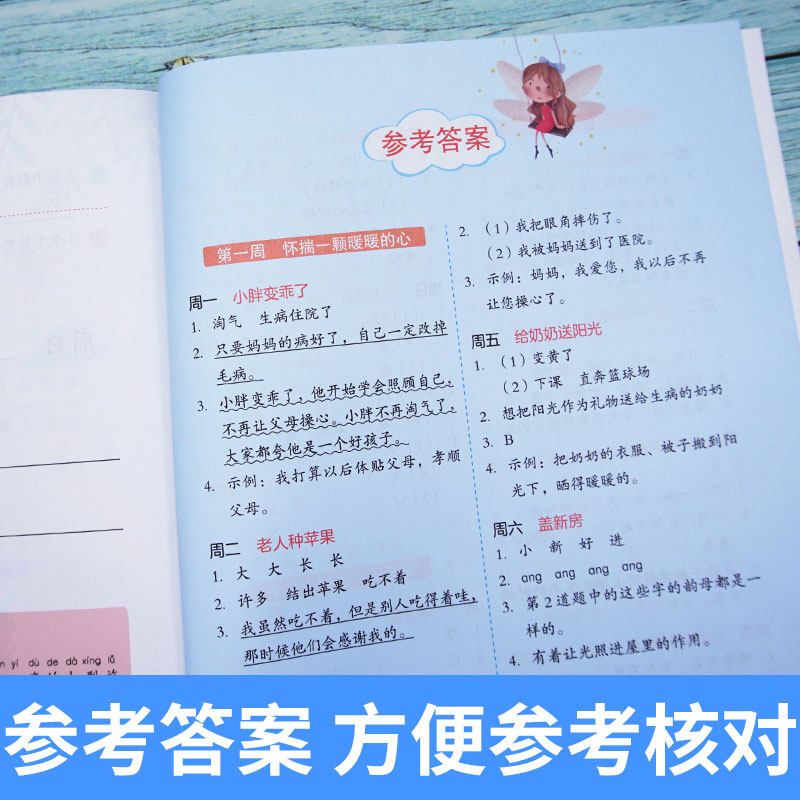 参考答案
第一周 怀揣一颗暖暖的心
周一 小胖变乖了
1. 淘气 生病住院了
2. 只要妈妈的病好了，自己一定改掉
毛病。
3. 小胖变乖了，他开始学会照顾自己，
不再让父母操心。小胖不再淘气了，
大家都夸他是一个好孩子。
4. 示例：我打算以后体贴父母，孝顺
父母。
周二 老人种苹果
1. 大 大 长 长
2. 许多 结出苹果 吃不着
3. 我虽然吃不着，但是别人吃得着哇，
那时候他们会感谢我的。
2. （1）我把眼角摔伤了。
（2）我被妈妈送到了医院。
3. 示例：妈妈，我爱您，我以后不再
让您操心了。
周五 给奶奶送阳光
1. （1）变黄了
（2）下课 直奔篮球场
2. 想把阳光作为礼物送给生病的奶奶
3. B
4. 示例：把奶奶的衣服、被子搬到阳
光下，晒得暖暖的。
周六 盖新房
1. 小 新 好 进
2. ang ang ang ang
3. 第2道题中的这些字的韵母都是一
样的。
4. 有着让光照进屋里的作用。
yí dù de dà xíng
参考答案 方便参考核对